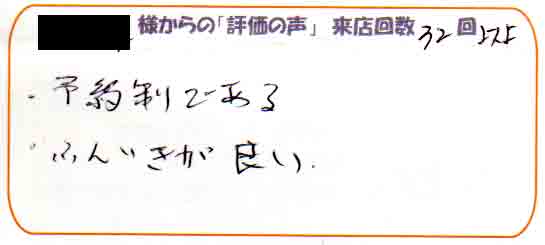 様からの「評価の声」 来店回数 32回
・予約制である
・ふんいきが良い.